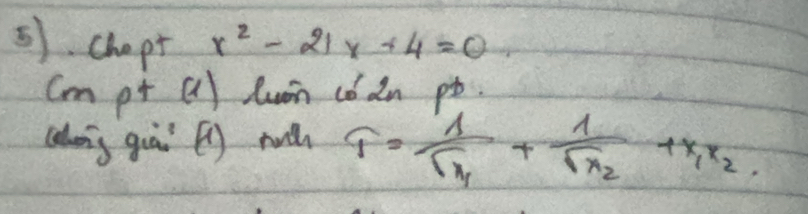 5). Cho pt x² - 21x + 4 = 0.
Cm pt (1) luôn có 2n pb.
không giải (1) tính T = 1/√x₁ + 1/√x₂ + x₁x₂.